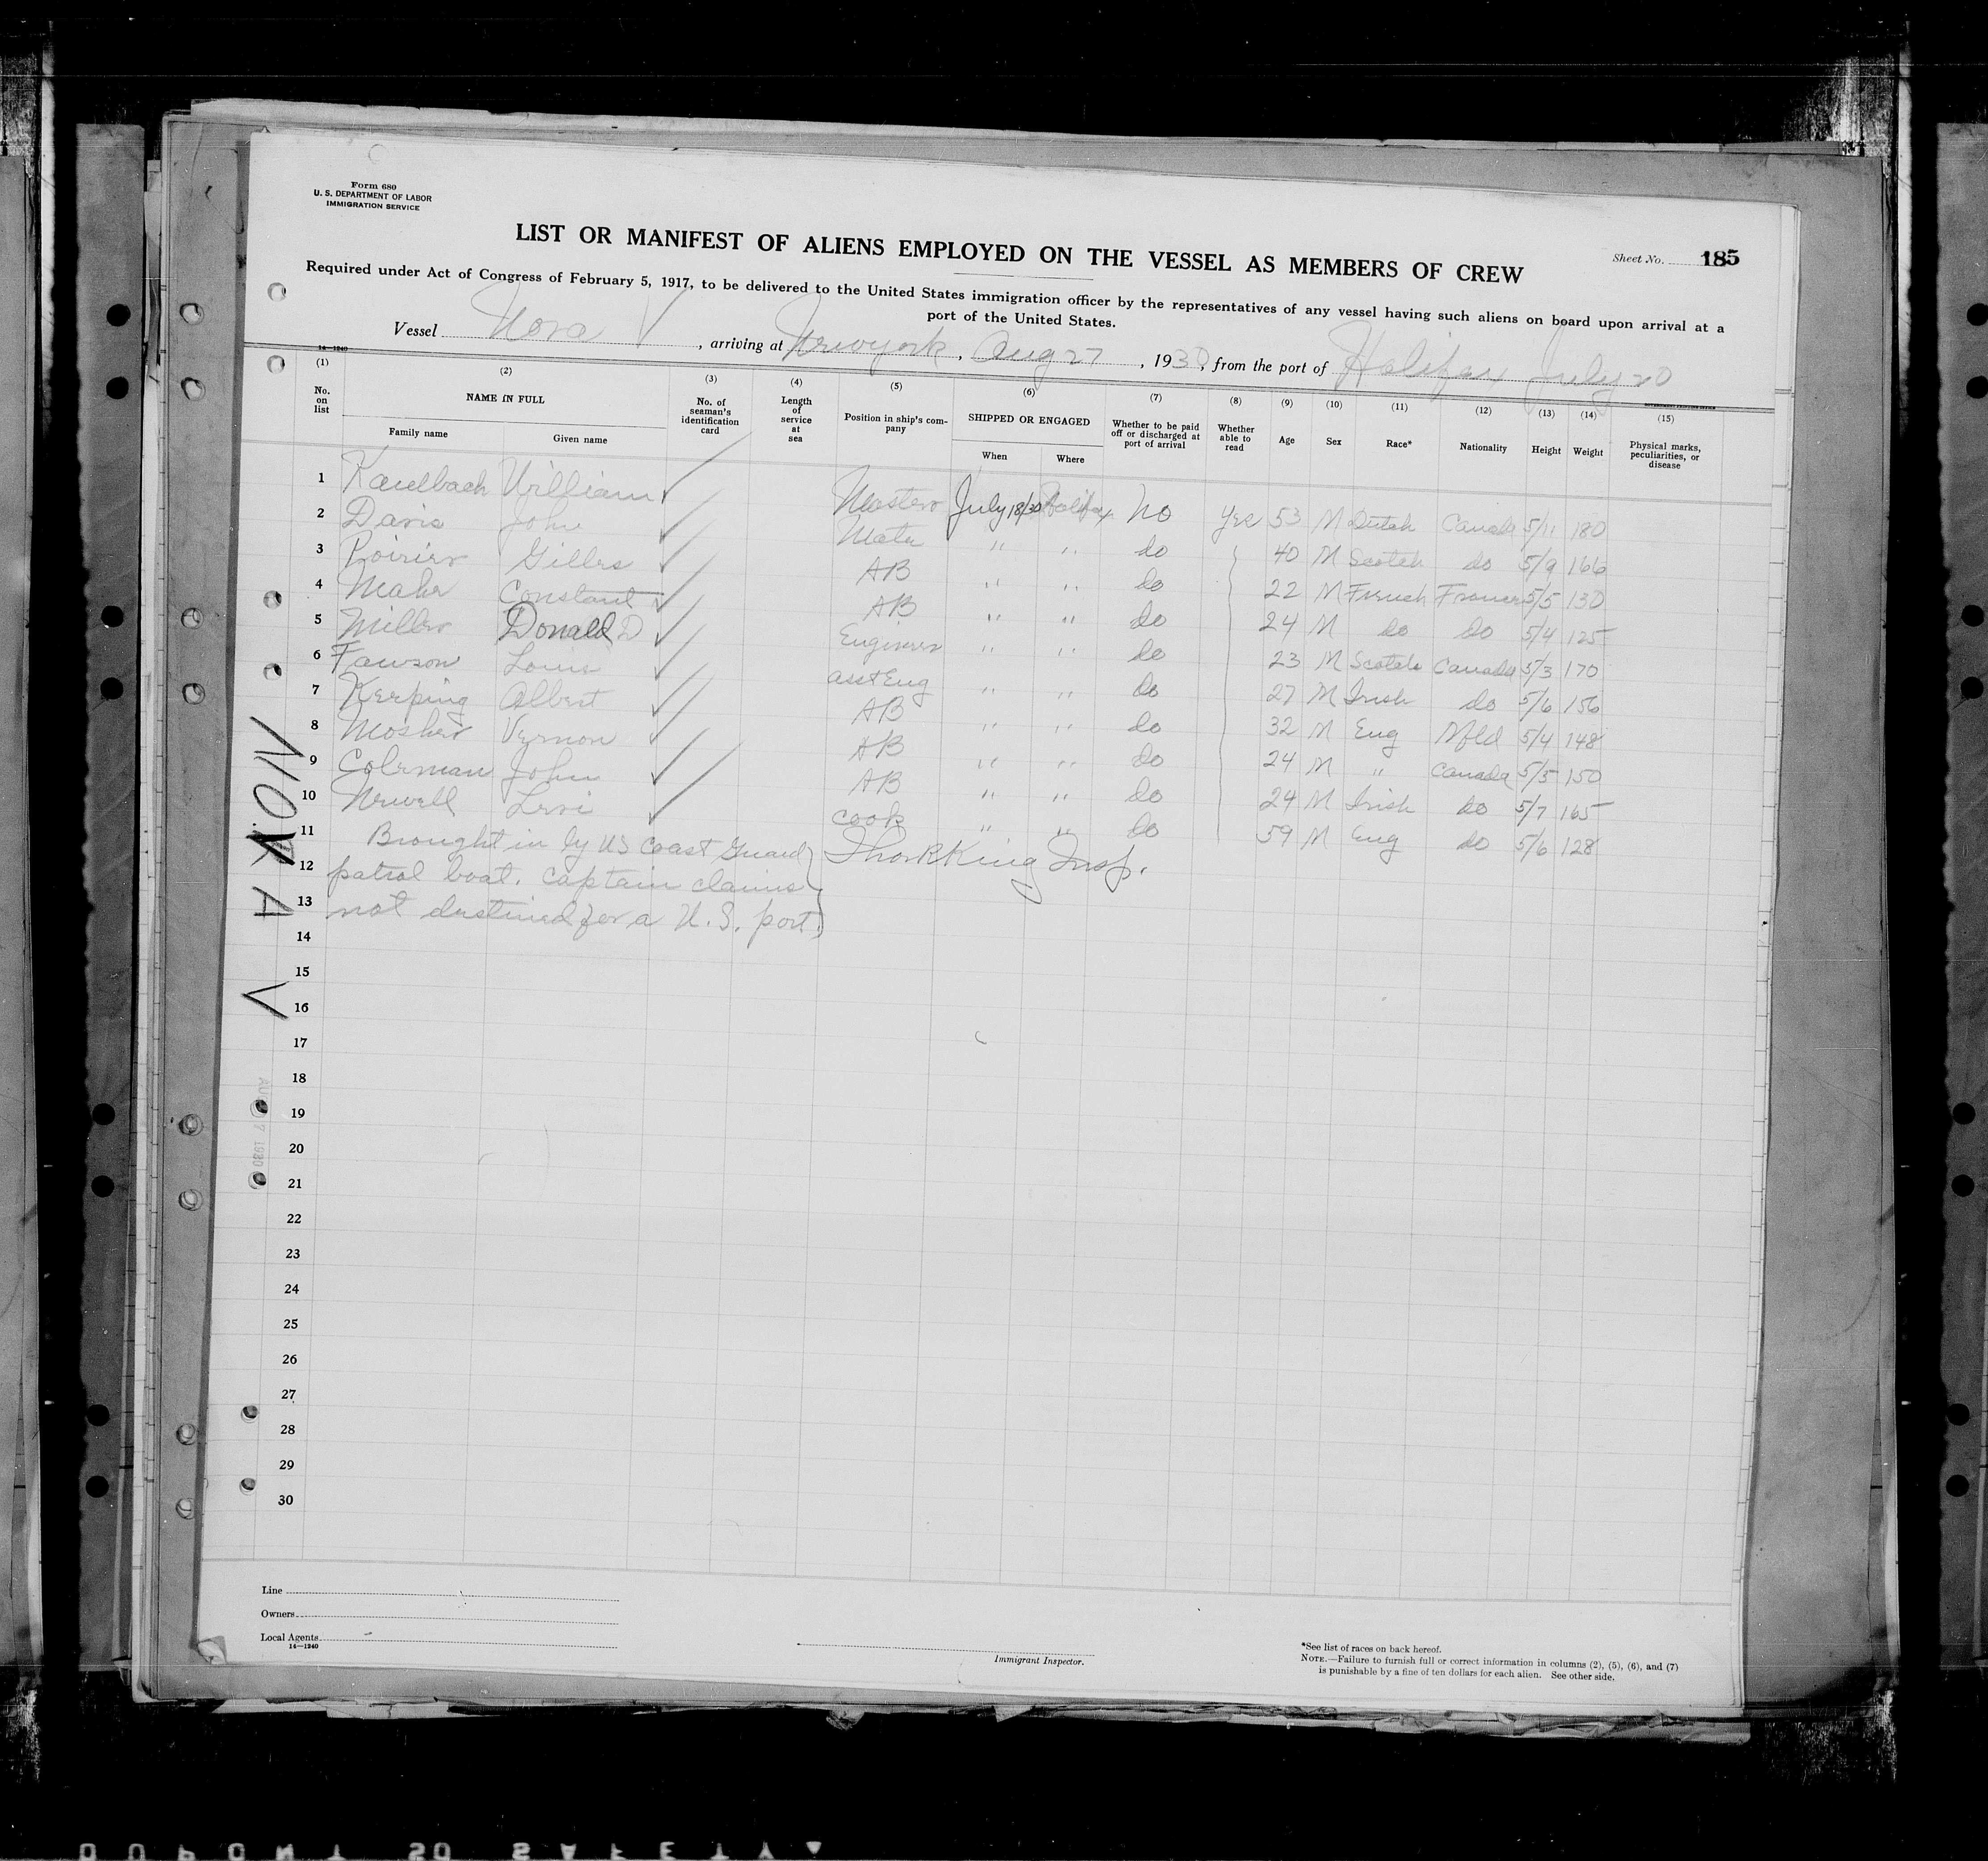 Form 680
U. S. DEPARTMENT OF LABOR
IMMIGRATION SERVICE
LIST OR MANIFEST OF ALIENS EMPLOYED ON THE VESSEL AS MEMBERS OF CREW
Sheet No. 185
Required under Act of Congress of February 5, 1917, to be delivered to the United States immigration officer by the representatives of any vessel having such aliens on board upon arrival at a
port of the United States.
Vessel Nova V, arriving at New York, Aug 27, 1930, from the port of Halifax July 20
14—1240
(1) (2) (3) (4) (5) (6) (7) (8) (9) (10) (11) (12) (13) (14) (15)
No. on list NAME IN FULL Family name Given name No. of seaman's identification card Length of service at sea Position in ship's company SHIPPED OR ENGAGED When Where Whether to be paid off or discharged at port of arrival Whether able to read Age Sex Race* Nationality Height Weight Physical marks, peculiarities, or disease
1 Kaulbach William Master July 18/30 Halifax No yes 53 M Dutch Canada 5/11 180
2 Davis John Mate " " do 40 M Scotch do 5/9 166
3 Poirier Gilles AB " " do 22 M French France 5/5 130
4 Mahe Constant AB " " do 24 M do do 5/4 125
5 Miller Donald D Engineer " " do 23 M Scotch Canada 5/3 170
6 Fawson Louis asst Eng " " do 27 M Irish do 5/6 156
7 Kerping Albert AB " " do 32 M Eng Nfld 5/4 148
8 Mosher Vernon AB " " do 24 M " Canada 5/5 150
9 Coleman John AB " " do 24 M Irish do 5/7 165
10 Newell Levi cook " " do 59 M Eng do 5/6 128
11 Brought in by US Coast Guard
12 patrol boat. Captain claims
13 not destined for a U.S. port.
King Insp.
14
15
16
17
18
19
20
21
22
23
24
25
26
27
28
29
30
NOVA V
1930
Line
Owners
Local Agents
14—1240
Immigrant Inspector.
*See list of races on back hereof.
NOTE.—Failure to furnish full or correct information in columns (2), (5), (6), and (7)
is punishable by a fine of ten dollars for each alien. See other side.
DUPONT 20 SAFETY